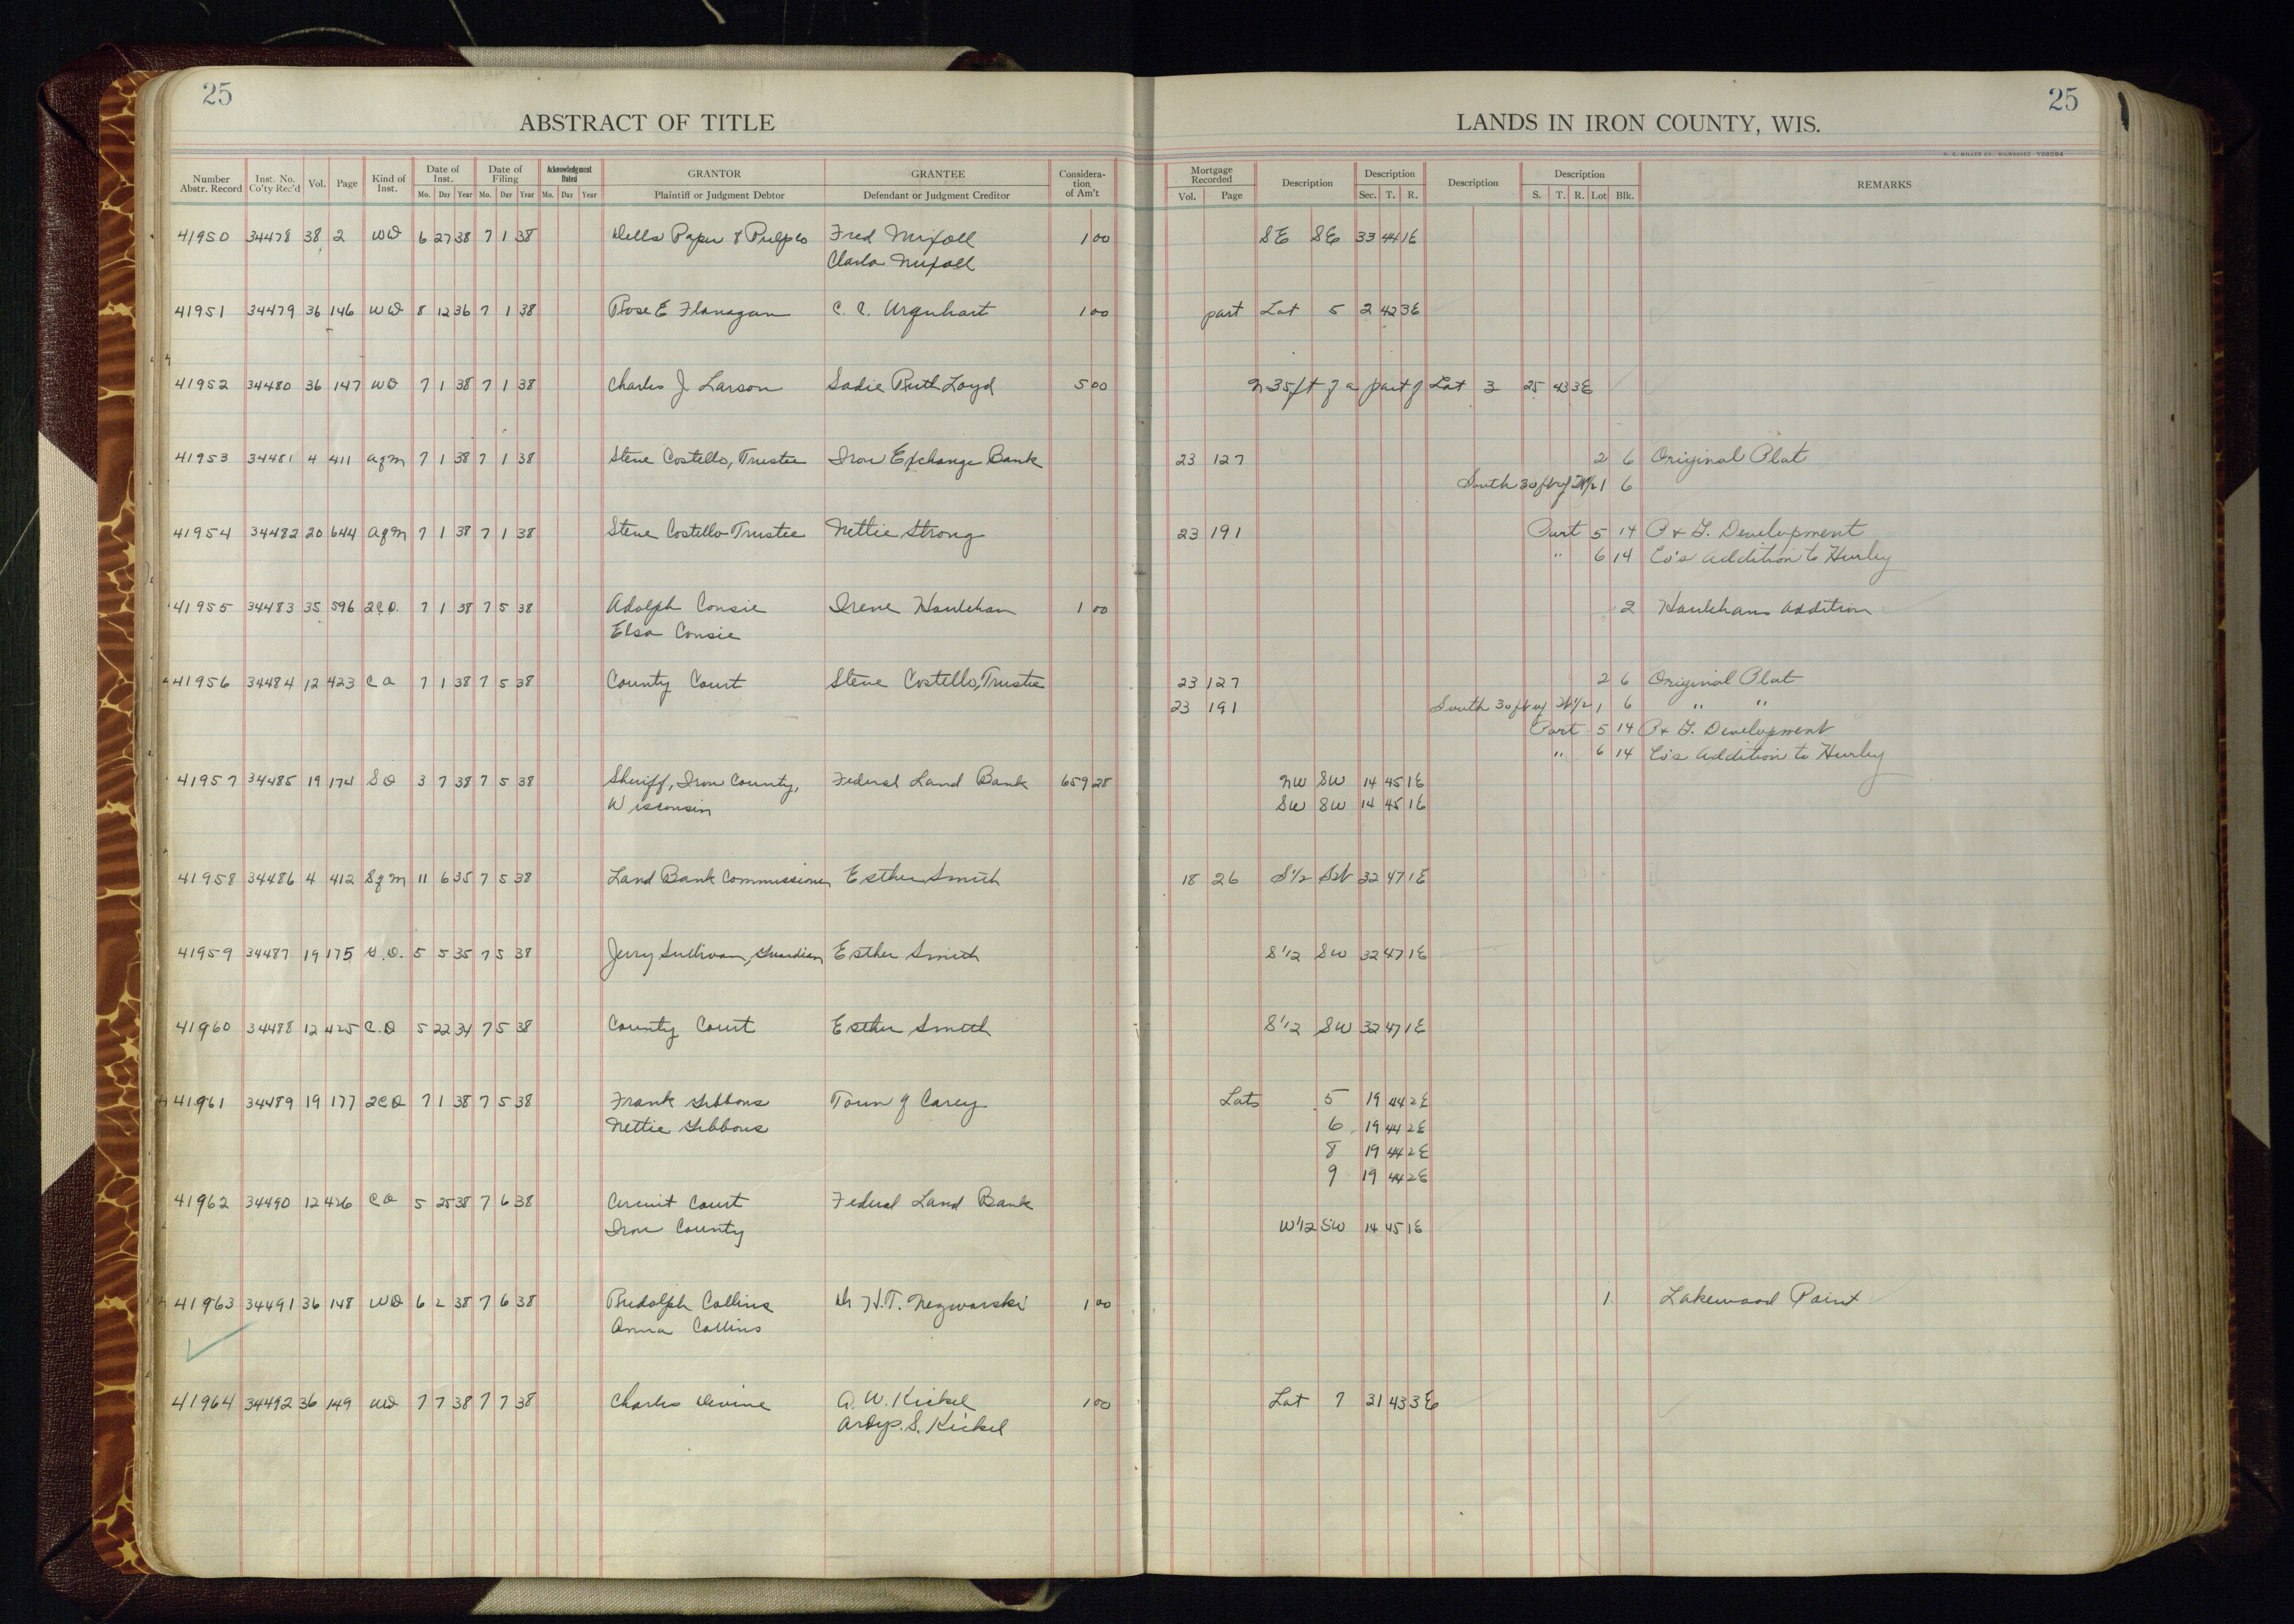 25
ABSTRACT OF TITLE
Number Abstr. Record Inst. No. Co'ty Rec'd Vol. Page Kind of Inst. Date of Inst. Mo. Day Year Date of Filing Mo. Day Year Acknowledgment Dated Mo. Day Year GRANTOR Plaintiff or Judgment Debtor GRANTEE Defendant or Judgment Creditor Considera-tion of Am't
25
LANDS IN IRON COUNTY, WIS.
H. C. MILLER CO., MILWAUKEE
Mortgage Recorded Vol. Page Description Description Sec. T. R. Description Description S. T. R. Lot Blk. REMARKS
41950 34478 38 2 WD 6 27 38 7 1 38 Dells Paper & Pulp Co Fred 1 00 SE SE 33 44 1E
Clara
41951 34479 36 146 WD 8 12 36 7 1 38 Rose E Flanagan C. C. Urquhart 1 00 part Lot 5 2 42 3E
41952 34480 36 147 WD 7 1 38 7 1 38 Charles J. Larson Sadie Ruth Loyd 5 00 N 35 ft of a part of Lot 3 25 43 3E
41953 34481 4 411 Agm 7 1 38 7 1 38 Steve Costello, Trustee Iron Exchange Bank 23 127 2 6 Original Plat
South 30 ft of N1/2 1 6
41954 34482 20 644 Agm 7 1 38 7 1 38 Steve Costello Trustee Nettie Strong 23 191 Part 5 14 P & G. Development
" 6 14 Co's Addition to Hurley
41955 34483 35 596 2CD. 7 1 38 7 5 38 Adolph Consie Irene Houlehan 1 00 2 Houlehans Addition
Elsa Consie
41956 34484 12 423 CO 7 1 38 7 5 38 County Court Steve Costello, Trustee 23 127 2 6 Original Plat
23 191 South 30 ft of N1/2 1 6 " "
Part 5 14 P & G. Development
" 6 14 Co's Addition to Hurley
41957 34485 19 174 SD 3 7 38 7 5 38 Sheriff, Iron County, Federal Land Bank 659 28 NW SW 14 45 1E
Wisconsin SW SW 14 45 1E
41958 34486 4 412 Sgm 11 6 35 7 5 38 Land Bank Commissioner Esther Smith 18 26 S1/2 SW 32 47 1E
41959 34487 19 175 G.D. 5 5 35 7 5 38 Jerry Sullivan, Guardian Esther Smith S1/2 SW 32 47 1E
41960 34488 12 425 C.O 5 22 34 7 5 38 County Court Esther Smith S1/2 SW 32 47 1E
41961 34489 19 177 2CD 7 1 38 7 5 38 Frank Gibbons Town of Carey Lots 5 19 44 2E
Nettie Gibbons 6 19 44 2E
8 19 44 2E
9 19 44 2E
41962 34490 12 426 CO 5 25 38 7 6 38 Circuit Court Federal Land Bank
Iron County W1/2 SW 14 45 1E
41963 34491 36 148 WD 6 2 38 7 6 38 Rudolph Collins Dr H.T. Nezworski 1 00 1 Lakewood Point
Anna Collins
41964 34492 36 149 WD 7 7 38 7 7 38 Charles Devine A. W. Kickel 1 00 Lot 7 31 43 3E
Ardys. S. Kickel